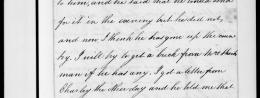 to him, and he said that he would send
for it in the evening but he did not,
and now I think he has gone up the coun
try. I will try to get a buck from Mrs
man if he has any. I got a letter from
Charley the other day and he told me that